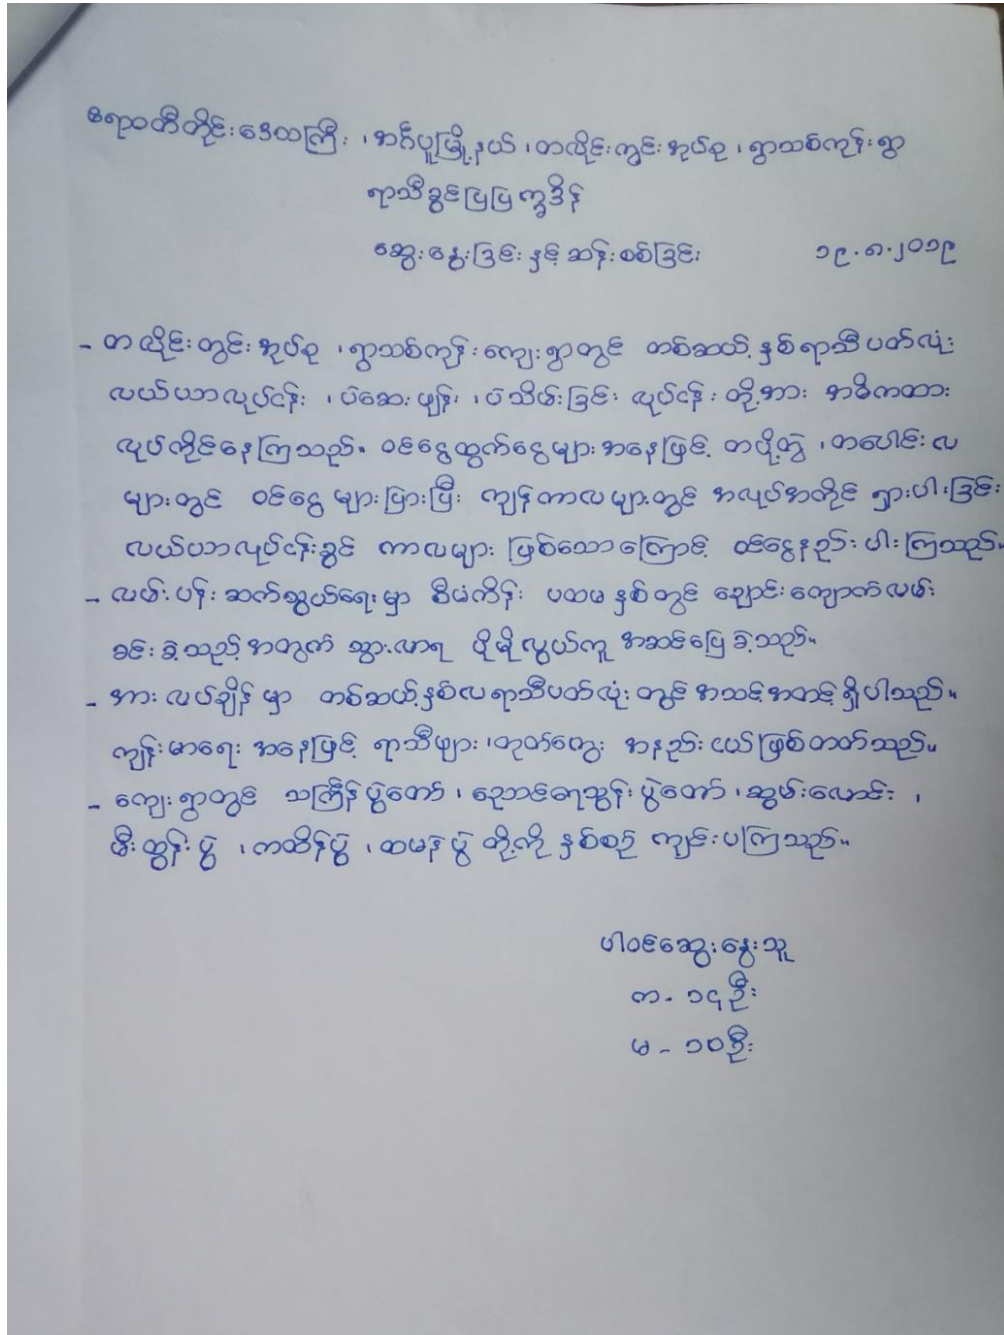 ဧရာဝတီတိုင်းဒေသကြီး ၊ အင်္ဂပူမြို့နယ် ၊ တလိုင်းကွင်းအုပ်စု ၊ ရွာသစ်ကုန်းရွာ
ရာသီခွင်ပြပြက္ခဒိန်
ဆွေးနွေးခြင်းနှင့် ဆန်းစစ်ခြင်း ၁၉.၈.၂၀၁၉
- တလိုင်းတွင်းအုပ်စု ၊ ရွာသစ်ကုန်းကျေးရွာတွင် တစ်ဆယ့်နှစ်ရာသီပတ်လုံး
လယ်ယာလုပ်ငန်း ၊ ပဲဆေးဖျန်း ၊ ပဲသိမ်းခြင်း လုပ်ငန်းတို့အား အဓိကထား
လုပ်ကိုင်နေကြသည်။ ဝင်ငွေထွက်ငွေများအနေဖြင့် တပို့တွဲ ၊ တပေါင်းလ
များတွင် ဝင်ငွေများပြားပြီး ကျန်ကာလများတွင် အလုပ်အကိုင် ရှားပါးခြင်း
လယ်ယာလုပ်ငန်းခွင် ကာလများ ဖြစ်သောကြောင့် ဝင်ငွေနည်းပါးကြသည်။
- လမ်းပန်းဆက်သွယ်ရေးမှာ စီမံကိန်း ပထမနှစ်တွင် ချောင်းကျောက်လမ်း
ခင်းခဲ့သည့်အတွက် သွားလာရ ပိုမိုလွယ်ကူ အဆင်ပြေခဲ့သည်။
- အားလပ်ချိန်မှာ တစ်ဆယ့်နှစ်လရာသီပတ်လုံးတွင် အသင့်အတင့်ရှိပါသည်။
ကျန်းမာရေး အနေဖြင့် ရာသီဖျား ၊ တုတ်ကွေး အနည်းငယ်ဖြစ်တတ်သည်။
- ကျေးရွာတွင် သင်္ကြန်ပွဲတော် ၊ ညောင်ရေသွန်းပွဲတော် ၊ ဆွမ်းလောင်း ၊
မီးထွန်းပွဲ ၊ ကထိန်ပွဲ ၊ ထမနဲပွဲ တို့ကို နှစ်စဉ် ကျင်းပကြသည်။
ပါဝင်ဆွေးနွေးသူ
က - ၁၄ဦး
မ - ၁၀ဦး